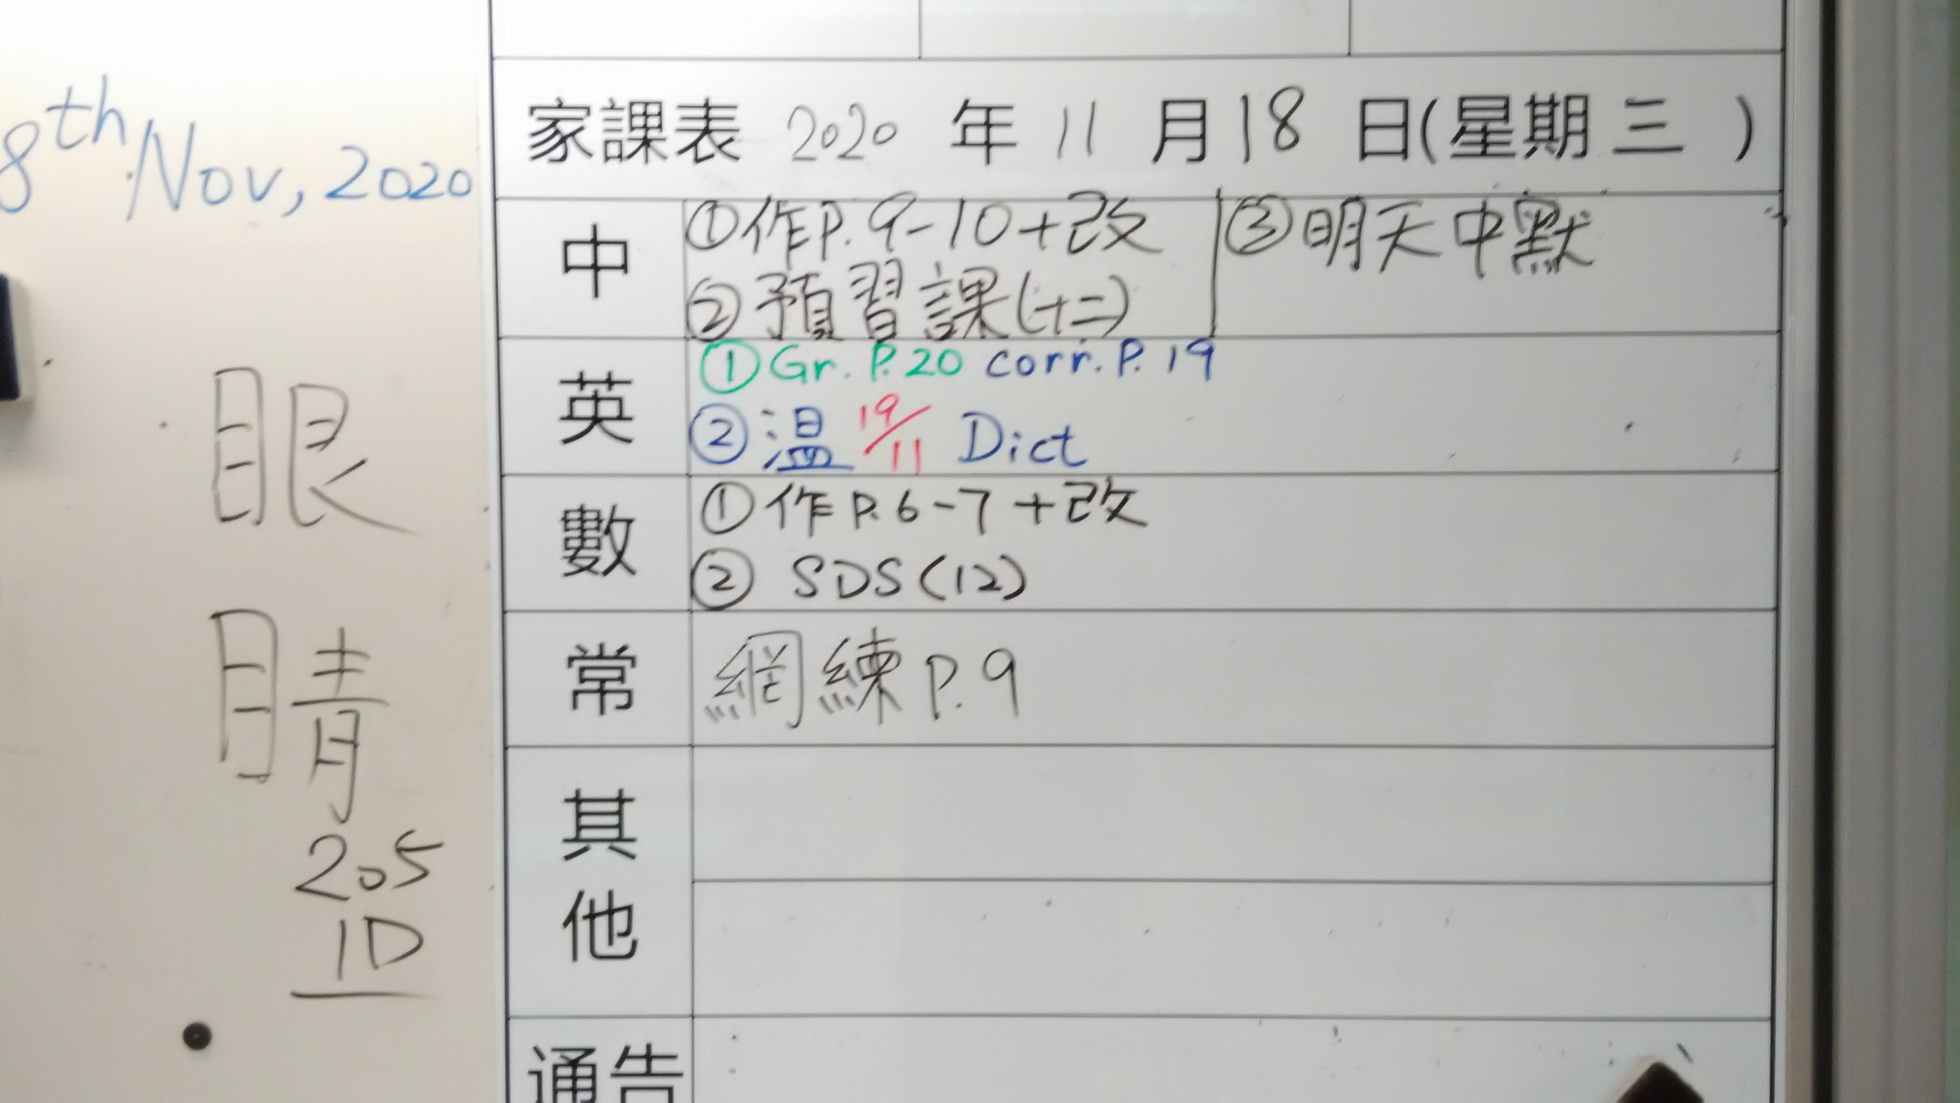 8th Nov, 2020
眼
睛
205
1D
家課表 2020 年 11 月 18 日(星期三 )
中
①作P.9-10+改
②預習課(十二)
③明天中默
英
①Gr. P.20 corr. P.19
②温 19/11 Dict
數
①作P.6-7+改
② SDS(12)
常
網練P.9
其他
通告